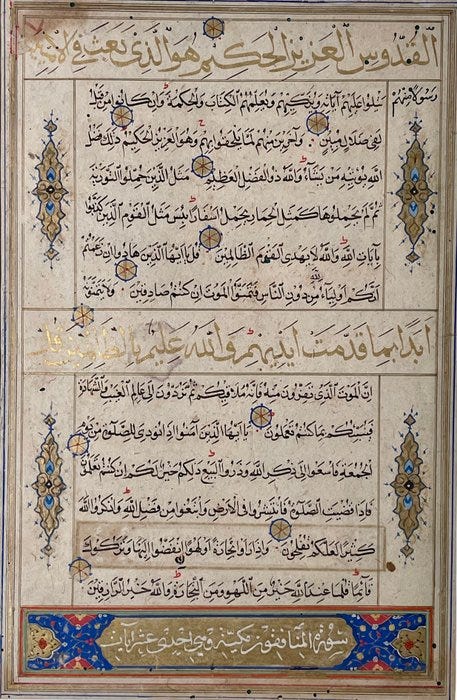 القدوس العزيز الحكيم هو الذي بعث في الاميين
رسولا منهم يتلوا عليهم آياته ويزكيهم ويعلمهم الكتاب والحكمة وان كانوا من قبل
لفي ضلال مبين وآخرين منهم لما يلحقوا بهم وهو العزيز الحكيم ذلك فضل
الله يؤتيه من يشاء والله ذو الفضل العظيم مثل الذين حملوا التورية
ثم لم يحملوها كمثل الحمار يحمل اسفارا بئس مثل القوم الذين كذبوا
بآيات الله والله لا يهدي القوم الظالمين قل يا ايها الذين هادوا ان زعمتم
انكم اولياء لله من دون الناس فتمنوا الموت ان كنتم صادقين ولا يتمنونه
ابدا بما قدمت ايديهم والله عليم بالظالمين قل
ان الموت الذي تفرون منه فانه ملاقيكم ثم تردون الى عالم الغيب والشهادة
فينبئكم بما كنتم تعملون يا ايها الذين آمنوا اذا نودي للصلوة من يوم
الجمعة فاسعوا الى ذكر الله وذروا البيع ذلكم خير لكم ان كنتم تعلمون
فاذا قضيت الصلوة فانتشروا في الارض وابتغوا من فضل الله واذكروا الله
كثيرا لعلكم تفلحون واذا راوا تجارة او لهوا انفضوا اليها وتركوك
قائما قل ما عند الله خير من اللهو ومن التجارة والله خير الرازقين
سورة المنافقون مكية وهي احدى عشر آيات